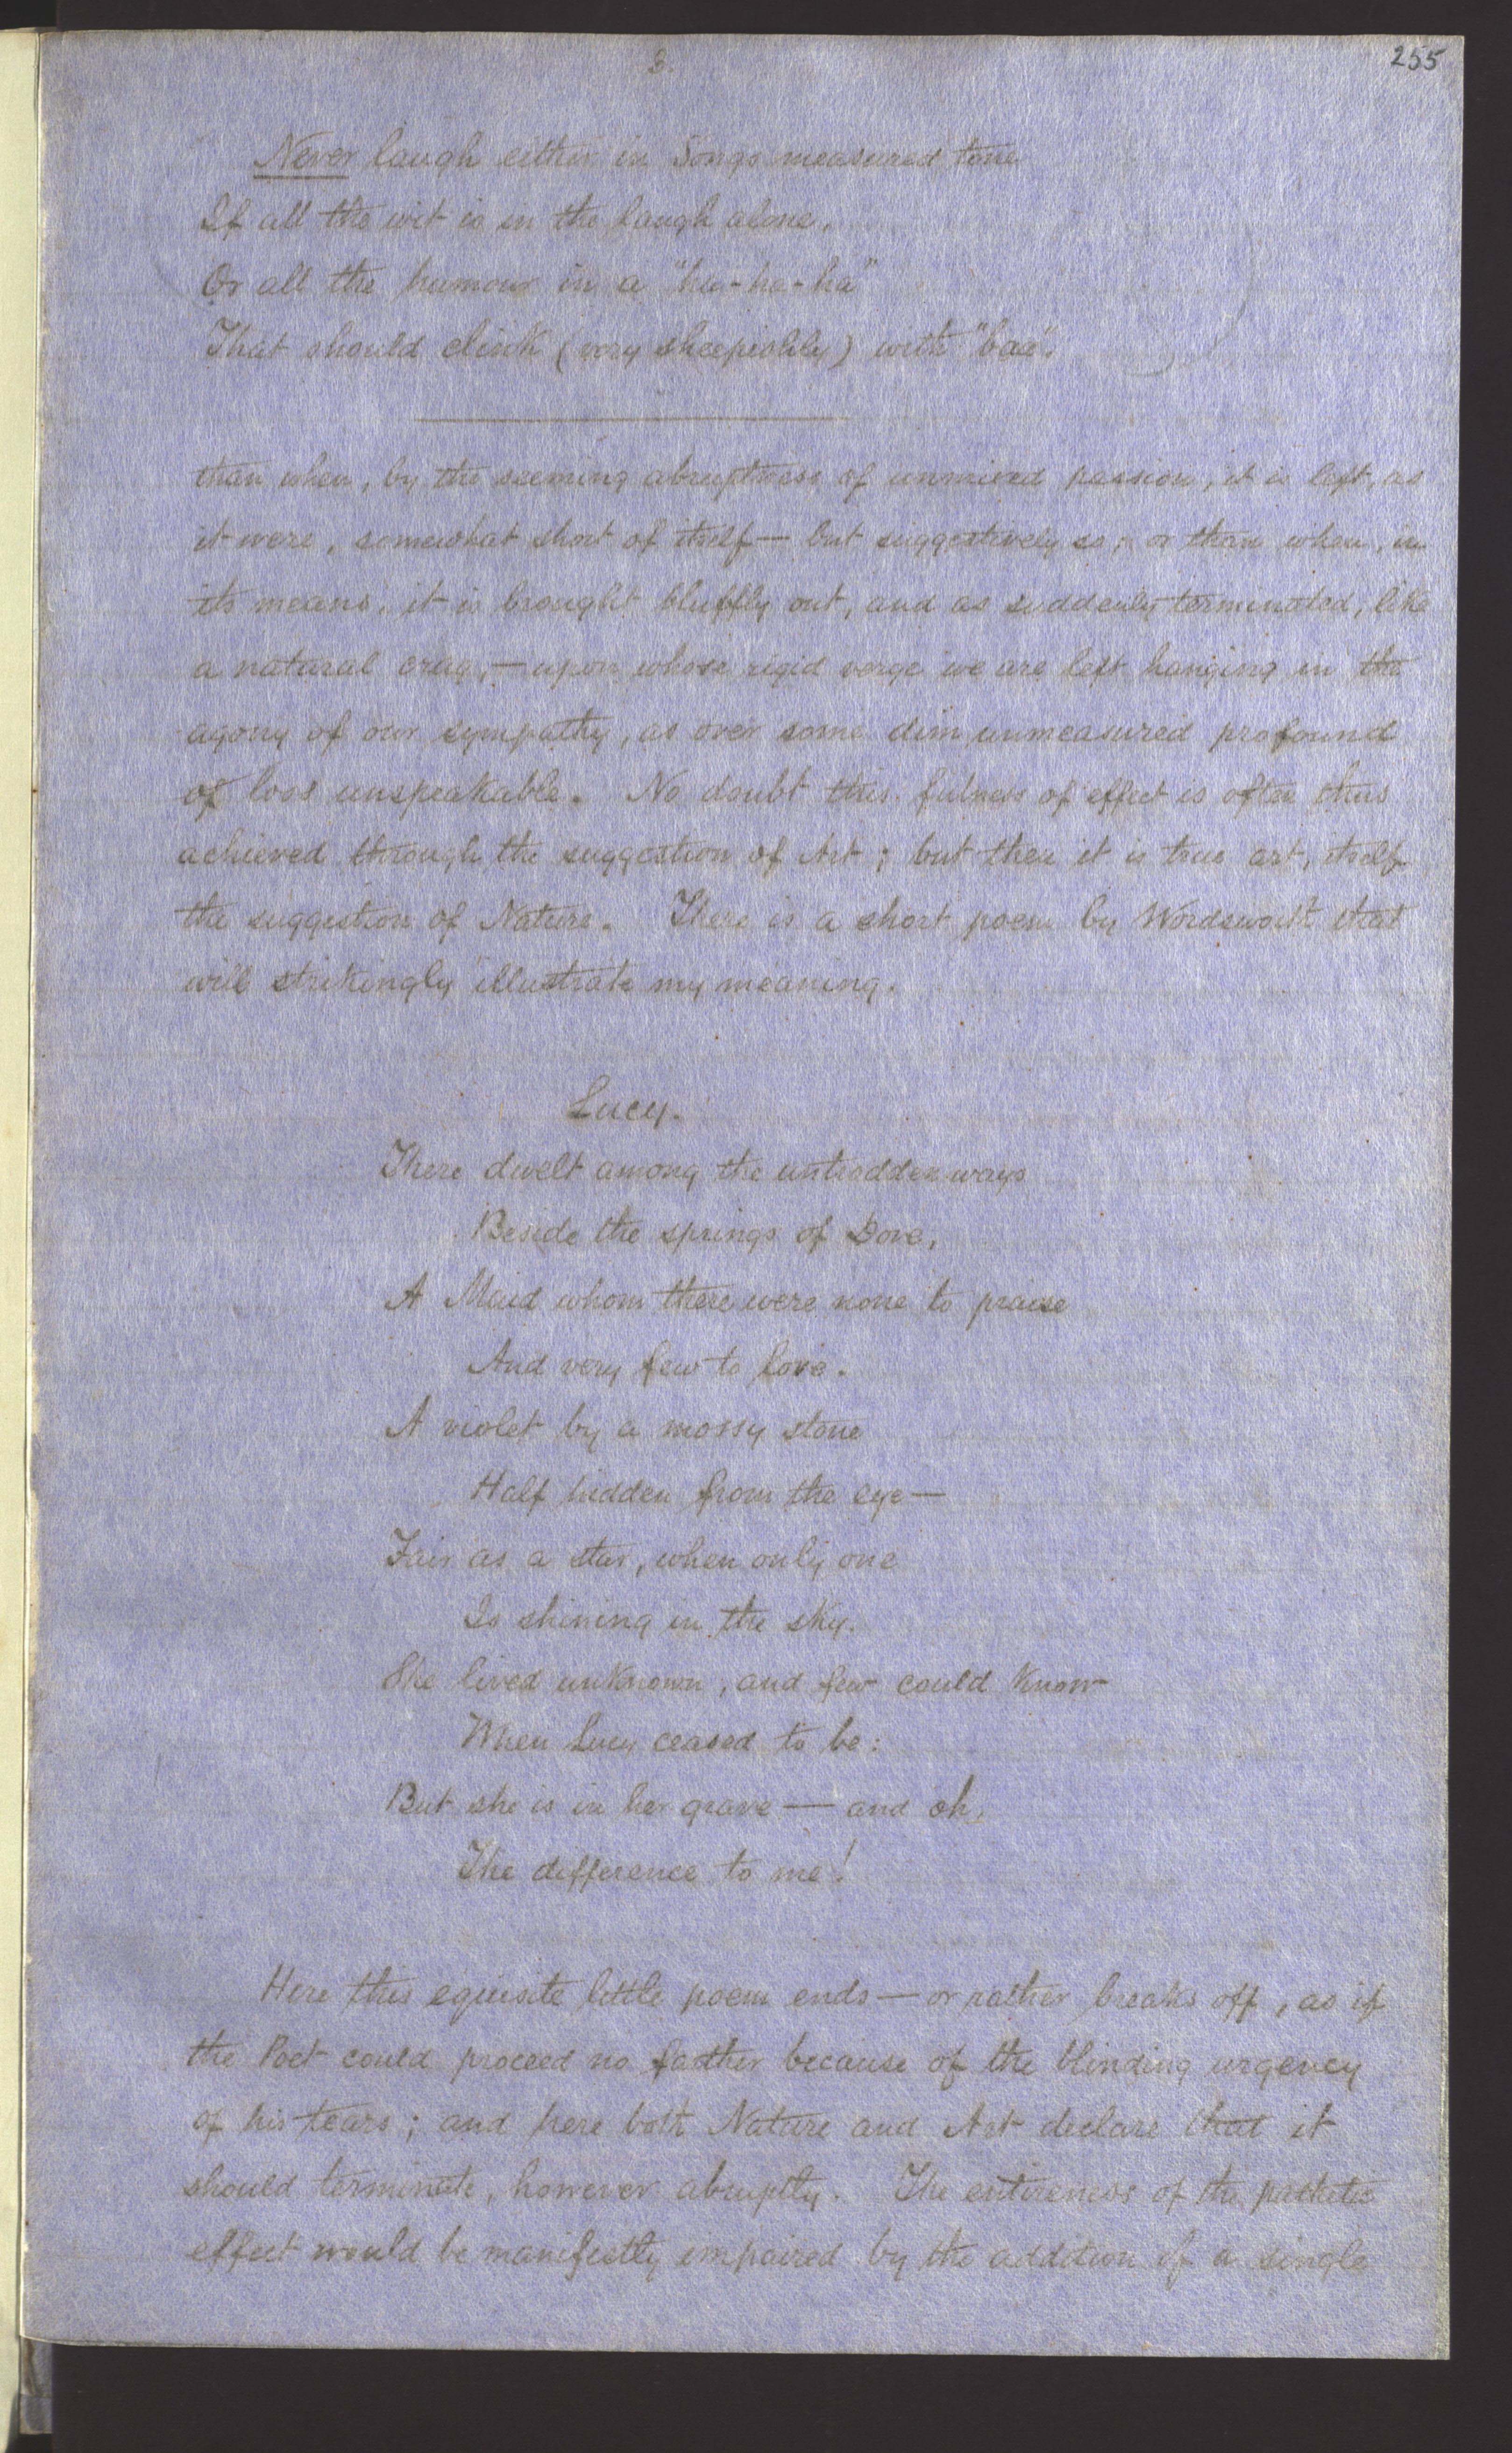 3.
255
Never laugh either in Songs measured tone
If all the wit is in the laugh alone,
Or all the humour in a "ha-ha-ha"
That should clink (very sheepishly) with "baa".
than when, by the seeming abruptness of unmixed passion, it is left, as
it were, somewhat short of itself — but suggestively so; or than when, in
its means, it is brought bluffly out, and as suddenly terminated, like
a natural crag, — upon whose rigid verge we are left hanging in the
agony of our sympathy, as over some dim unmeasured profound
of loss unspeakable. No doubt this fulness of effect is often thus
achieved through the suggestion of Art; but then it is true art, itself
the suggestion of Nature. There is a short poem by Wordsworth that
will strikingly illustrate my meaning.
Lucy.
There dwelt among the untrodden ways
Beside the springs of Dove,
A Maid whom there were none to praise
And very few to love.
A violet by a mossy stone
Half hidden from the eye —
Fair as a star, when only one
Is shining in the sky.
She lived unknown, and few could know
When Lucy ceased to be:
But she is in her grave — and oh,
The difference to me!
Here this equisite little poem ends — or rather breaks off, as if
the Poet could proceed no farther because of the blinding urgency
of his tears; and here both Nature and Art declare that it
should terminate, however abruptly. The entireness of the pathetic
effect would be manifestly impaired by the addition of a single